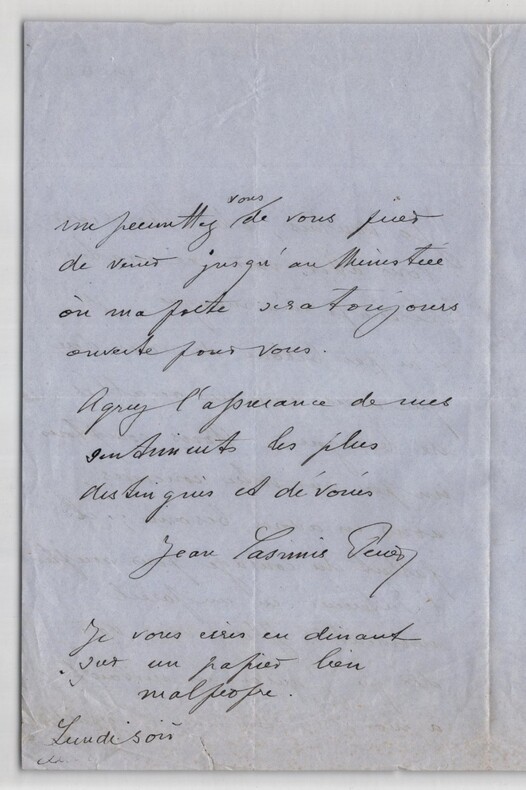 vous
me permettez de vous prier
de venir jusqu'au Ministère
où ma porte sera toujours
ouverte pour vous.
Agréez l'assurance de mes
sentiments les plus
distingués et dévoués
Jean Casimir Perier
Je vous écris en dinant
sur un papier bien
malpropre.
Lundi soir